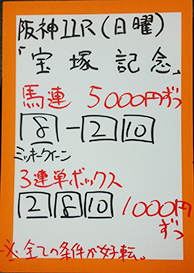 阪神11R(日曜)
「宝塚記念」
馬連 5000円ずつ
8-2 10
ミッキークイーン
3連単ボックス
2 8 10 1000円ずつ
※全ての条件が好転。